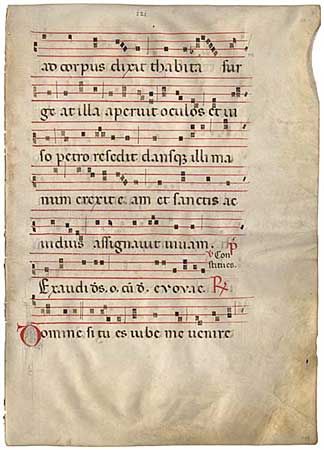 ad corpus dixit thabita sur
ge at illa aperuit oculos et in
so petro resedit dansq; illi ma
num erexit e am et sanctis ac
uiduis assignauit uiuam. P
Con
stitues.
Exaudi ds. o. euouae. R
Domine si tu es iube me uenire